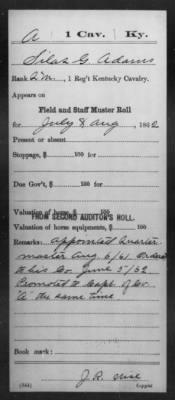 A | 1 Cav. | Ky.
Silas G. Adams
Rank Q.M., 1 Reg't Kentucky Cavalry.
Appears on
Field and Staff Muster Roll
for July & Aug, 1862
Present or absent
Stoppage, $ 100 for
Due Gov't, $ 100 for
Valuation of horse, $ 100
FROM SECOND AUDITOR'S ROLL.
Valuation of horse equipments, $ 100
Remarks: Appointed Quarter
master Aug 6/61
to his Co. June 5/62
Promoted to Capt. of Co.
"A" the same time
Book mark:
(544)
J.R.
Copyist